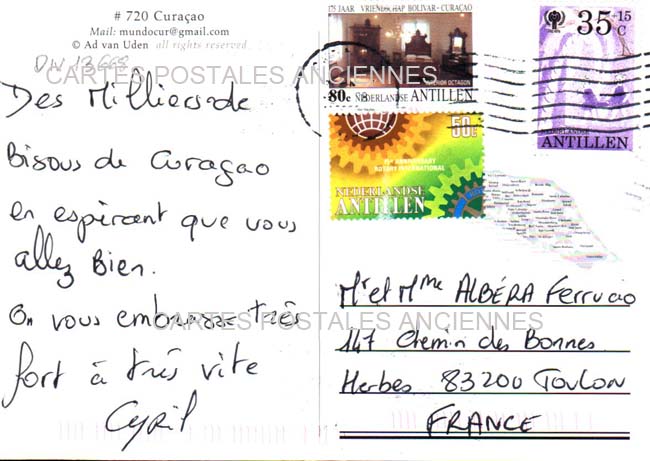 # 720 Curaçao
Mail: mundocur@gmail.com
© Ad van Uden all rights reserved
DW 13668
CARTES POSTALES ANCIENNES
Des Milliers de
Bisous de Curaçao
en espérant que vous
allez Bien.
On vous embrasse très
fort à très vite
Cyril
175 JAAR VRIENDSCHAP BOLIVAR-CURAÇAO
INTERIOR OCTAGON
80c NEDERLANDSE ANTILLEN
35+15
C
NEDERLANDSE
ANTILLEN
50c
ANNIVERSARY
ROTARY INTERNATIONAL
NEDERLANDSE
ANTILLEN
Mr et Mme ALBÉRA Ferrucio
CARTES POSTALES ANCIENNES
147 Chemin des Bonnes
Herbes 83200 Toulon
FRANCE